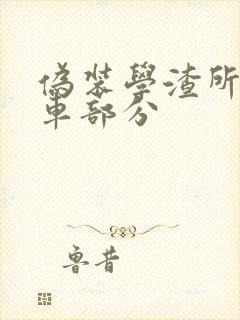 偽裝學渣所
車部分
魯昔